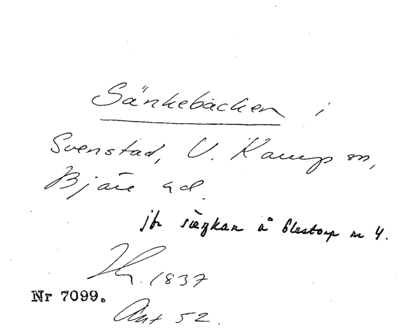 Sänkebäcken i
Svenstad, V. Karup sn,
Bjäre hd.
jfr sägkar å Glestorp nr 4.
1837
Nr 7099.
Ant 52.